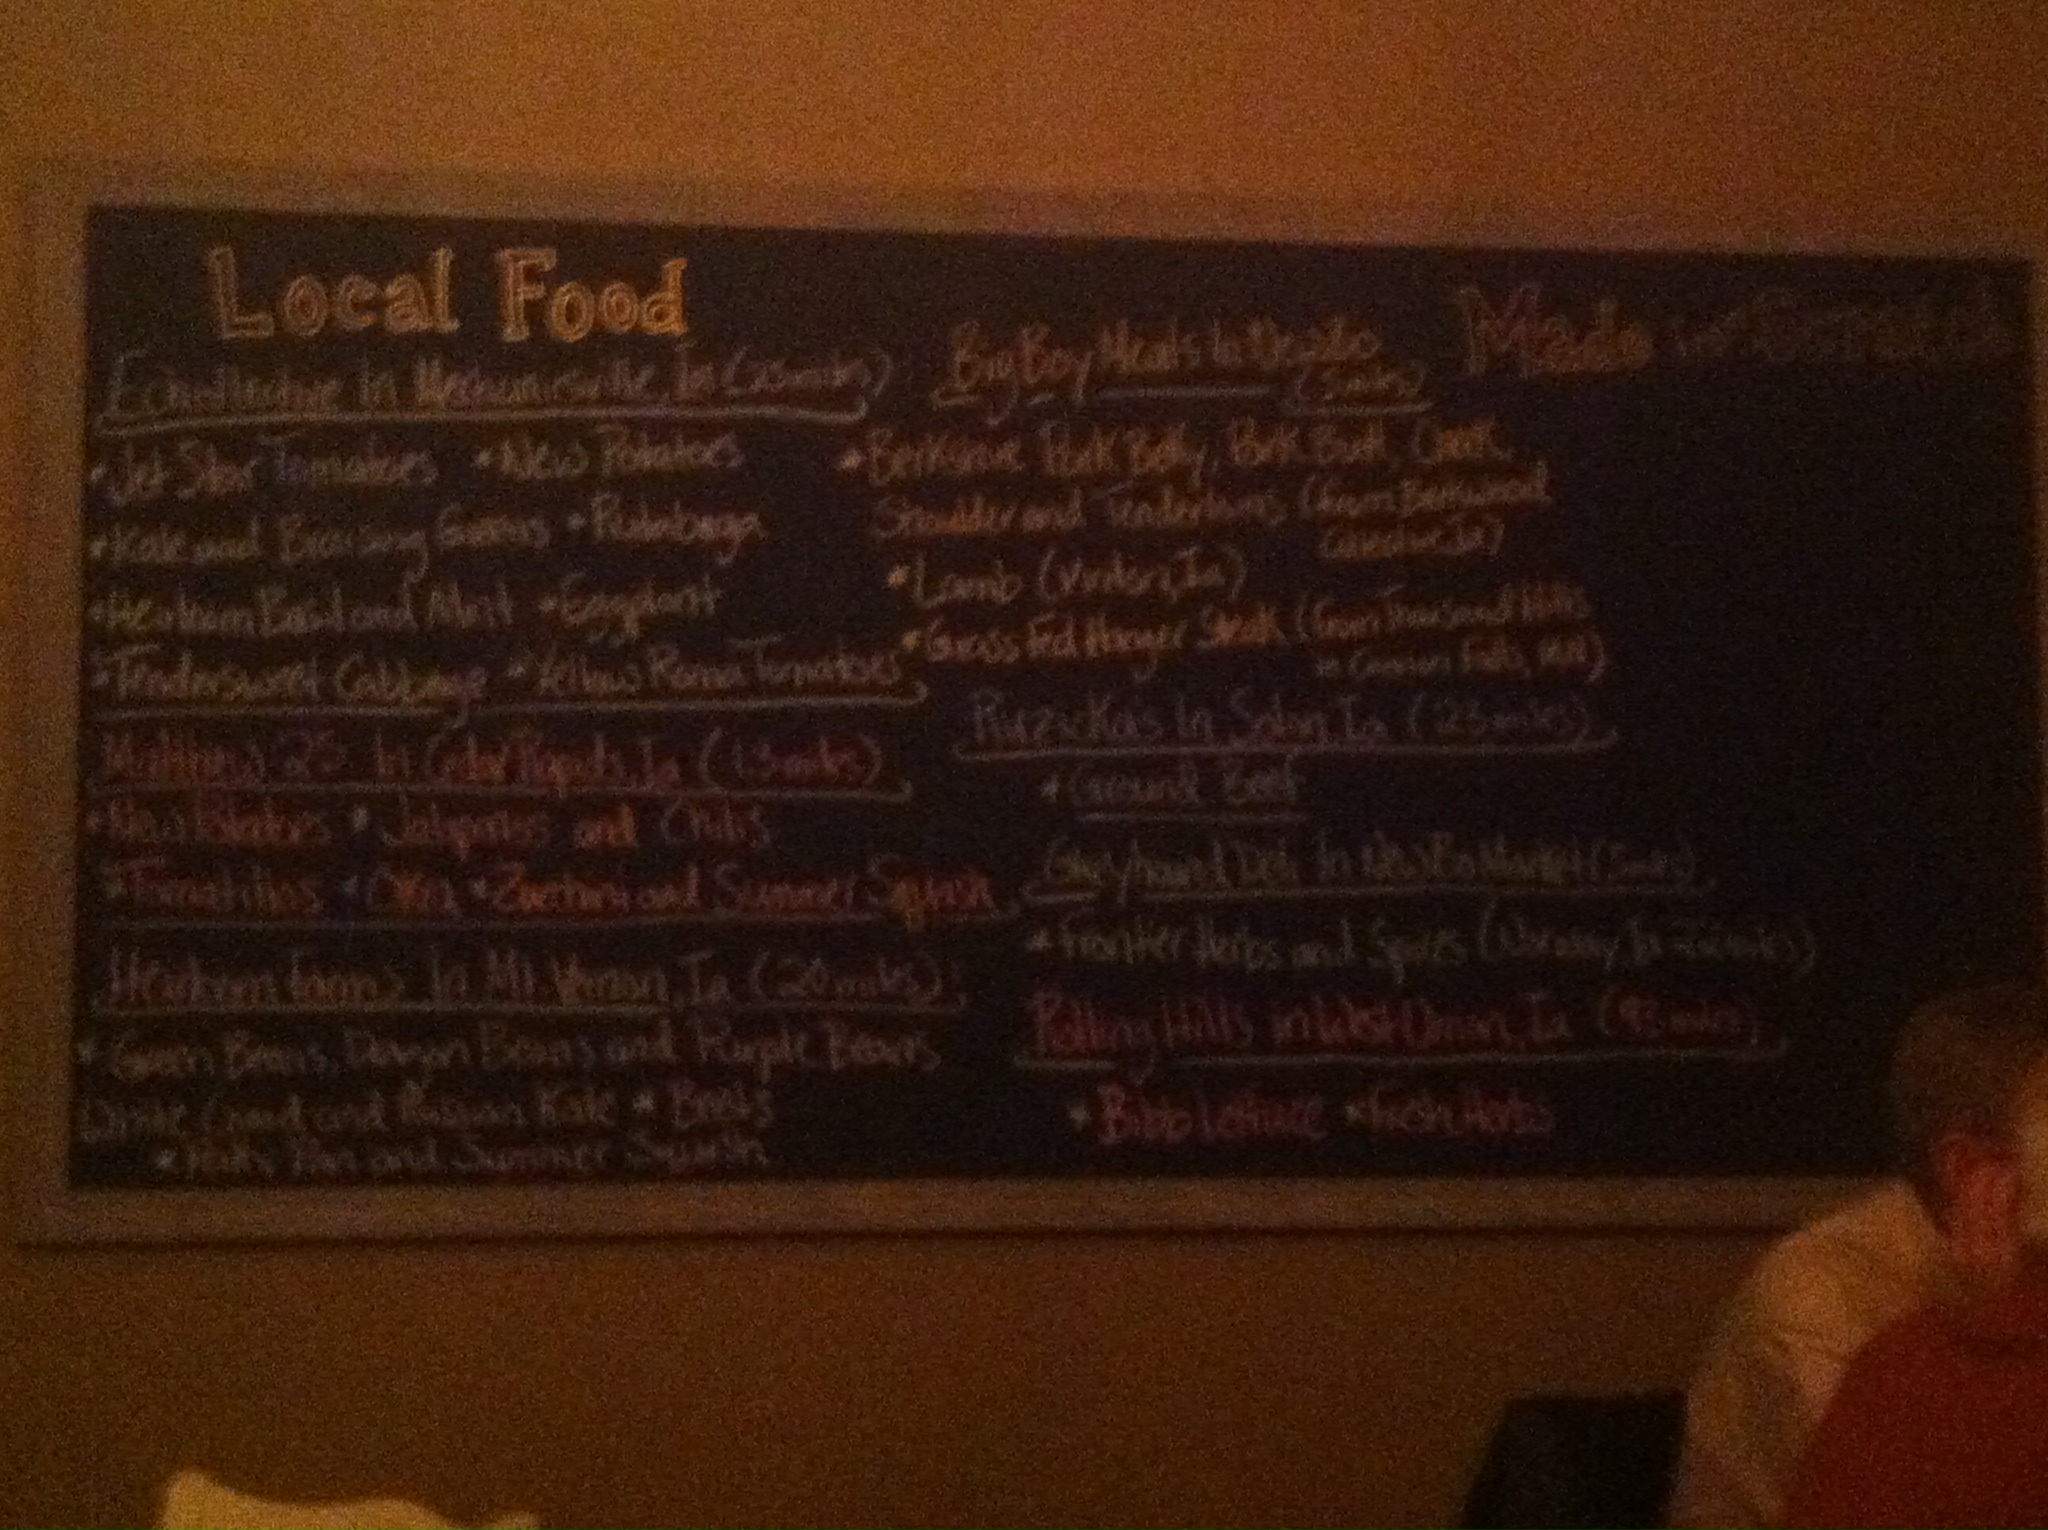 Local Food
In Mechanicsville, Ia (23 miles)
• Jet Star Tomatoes • New Potatoes
• Kale and Braising Greens • Rutabaga
• Heirloom Basil and Mint • Eggplant
• Tendersweet Cabbage • Yellow Roma Tomatoes
In Cedar Rapids, Ia (13 miles)
• New Potatoes • Jalapenos and Chilis
• Tomatillos • Okra • Zucchini and Summer Squash
Farms In Mt. Vernon, Ia (20 miles)
• Green Beans, Dragon Beans and Purple Beans
Chard and Russian Kale • Beets
• Patty Pan and Summer Squash
Big Boy Meats In
(5 miles)
• Berkshire Pork Belly, Pork Butt,
Shoulder and Tenderloins (from
• Lamb
• Grass Fed Hanger Steak (From Thousand Hills
in Cannon Falls, MN)
Ruzicka's In Solon, Ia (23 miles)
• Ground Beef
Greyhound Deli In NewBo Market (5 miles)
• Frontier Herbs and Spices (Norway, Ia
Rolling Hills in West Union, Ia
• Bibb Lettuce • Fresh Herbs
Made